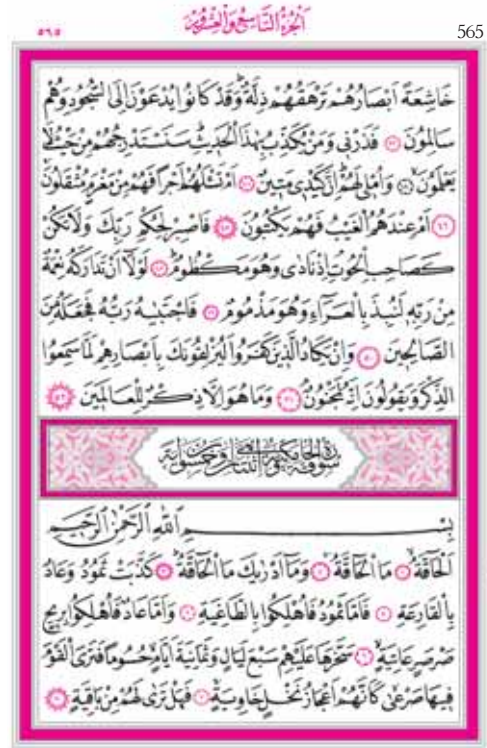 ٥٦٥ الجزء التاسع والعشرون 565
خَاشِعَةً اَبْصَارُهُمْ تَرْهَقُهُمْ ذِلَّةٌ وَقَدْ كَانُوا يُدْعَوْنَ اِلَى السُّجُودِ وَهُمْ
سَالِمُونَ ﴿٤٣﴾ فَذَرْنِى وَمَنْ يُكَذِّبُ بِهٰذَا الْحَدِيثِ سَنَسْتَدْرِجُهُمْ مِنْ حَيْثُ لَا
يَعْلَمُونَ ﴿٤٤﴾ وَاُمْلِى لَهُمْ اِنَّ كَيْدِى مَتِينٌ ﴿٤٥﴾ اَمْ تَسْـَٔلُهُمْ اَجْرًا فَهُمْ مِنْ مَغْرَمٍ مُثْقَلُونَ
﴿٤٦﴾ اَمْ عِنْدَهُمُ الْغَيْبُ فَهُمْ يَكْتُبُونَ ﴿٤٧﴾ فَاصْبِرْ لِحُكْمِ رَبِّكَ وَلَا تَكُنْ
كَصَاحِبِ الْحُوتِ اِذْ نَادٰى وَهُوَ مَكْظُومٌ ﴿٤٨﴾ لَوْلَٓا اَنْ تَدَارَكَهُ نِعْمَةٌ
مِنْ رَبِّهِ لَنُبِذَ بِالْعَرَٓاءِ وَهُوَ مَذْمُومٌ ﴿٤٩﴾ فَاجْتَبٰيهُ رَبُّهُ فَجَعَلَهُ مِنَ
الصَّالِحِينَ ﴿٥٠﴾ وَاِنْ يَكَادُ الَّذِينَ كَفَرُوا لَيُزْلِقُونَكَ بِاَبْصَارِهِمْ لَمَّا سَمِعُوا
الذِّكْرَ وَيَقُولُونَ اِنَّهُ لَمَجْنُونٌ ﴿٥١﴾ وَمَا هُوَ اِلَّا ذِكْرٌ لِلْعَالَمِينَ ﴿٥٢﴾
سورة الحاقة مكية وهى اثنتان وخمسون اية
بِسْمِ اللّٰهِ الرَّحْمٰنِ الرَّحِيمِ
اَلْحَٓاقَّةُ ﴿١﴾ مَا الْحَٓاقَّةُ ﴿٢﴾ وَمَٓا اَدْرٰيكَ مَا الْحَٓاقَّةُ ﴿٣﴾ كَذَّبَتْ ثَمُودُ وَعَادٌ
بِالْقَارِعَةِ ﴿٤﴾ فَاَمَّا ثَمُودُ فَاُهْلِكُوا بِالطَّاغِيَةِ ﴿٥﴾ وَاَمَّا عَادٌ فَاُهْلِكُوا بِرِيحٍ
صَرْصَرٍ عَاتِيَةٍ ﴿٦﴾ سَخَّرَهَا عَلَيْهِمْ سَبْعَ لَيَالٍ وَثَمَانِيَةَ اَيَّامٍ حُسُومًا فَتَرَى الْقَوْمَ
فِيهَا صَرْعٰى كَاَنَّهُمْ اَعْجَازُ نَخْلٍ خَاوِيَةٍ ﴿٧﴾ فَهَلْ تَرٰى لَهُمْ مِنْ بَاقِيَةٍ ﴿٨﴾